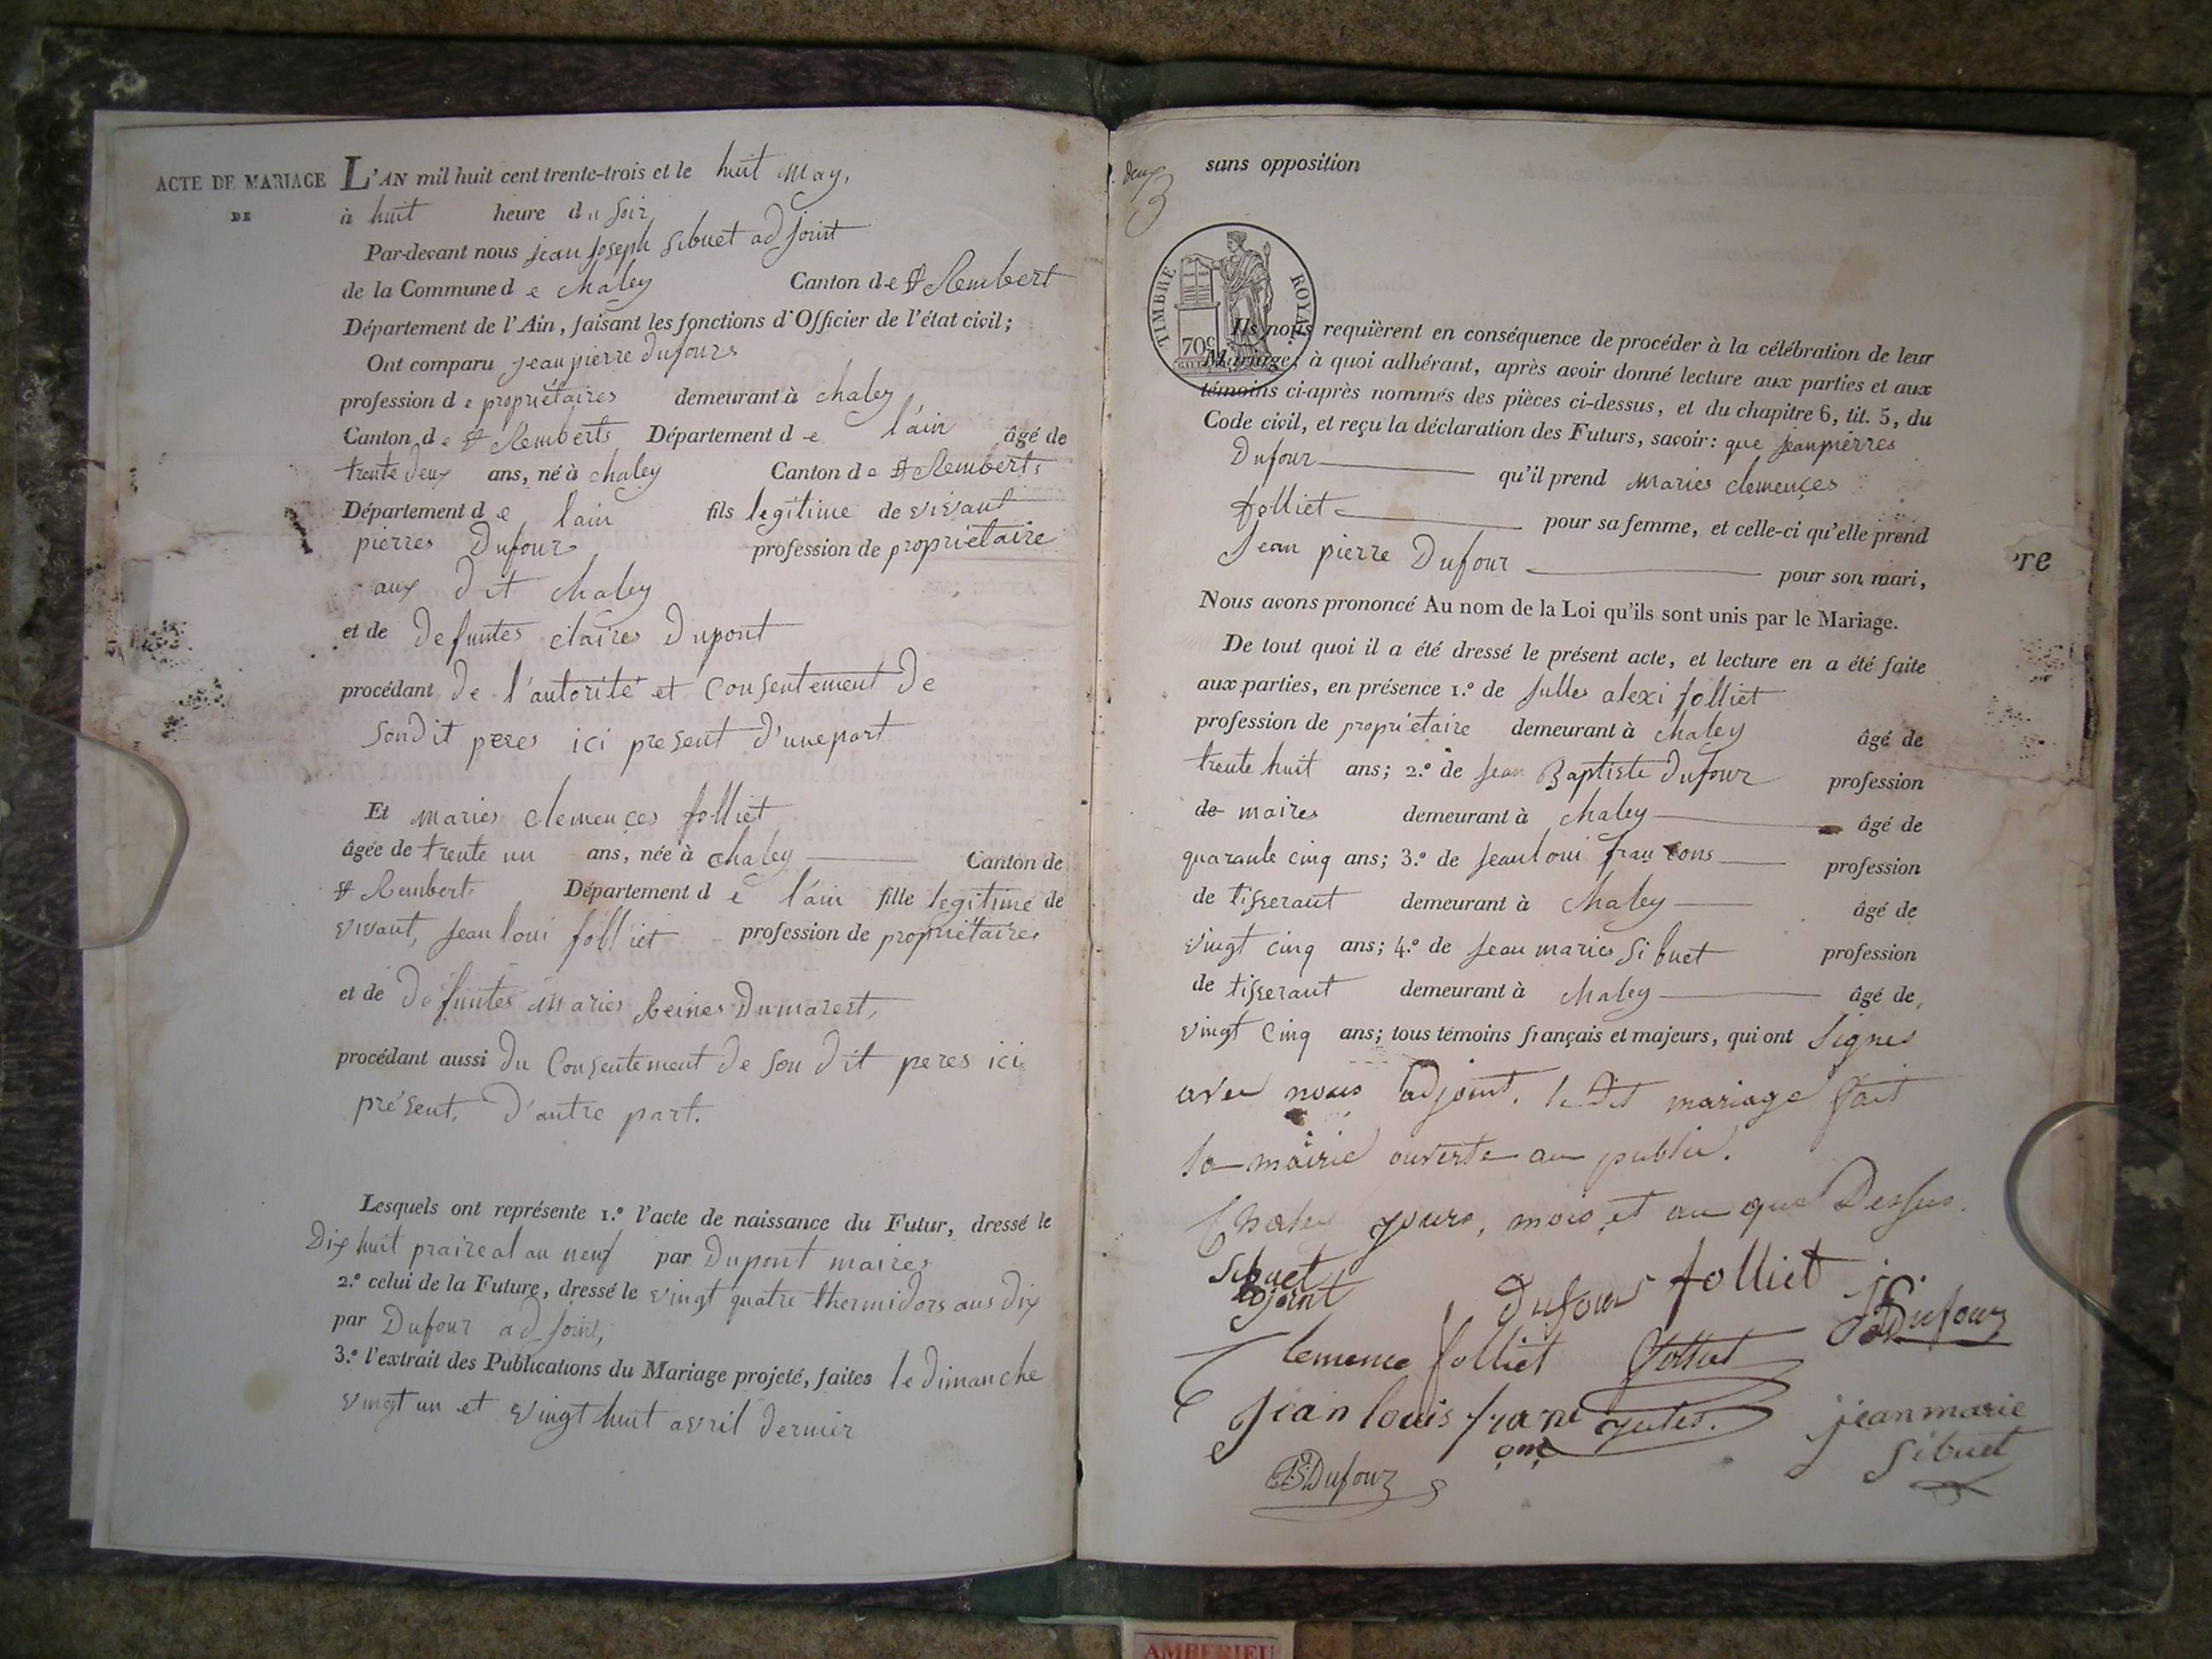 ACTE DE MARIAGE
DE
L'AN mil huit cent trente-trois et le huit may,
à huit heure du soir
Par-devant nous jean joseph sibuet adjoint
de la Commune de chaley Canton de St Rembert
Département de l'Ain, faisant les fonctions d'Officier de l'état civil;
Ont comparu jean pierre dufours
profession de propriétaires demeurant à chaley
Canton de St Remberts Département de l'ain âgé de
trente deux ans, né à chaley Canton de St Remberts
Département de lain fils legitime de vivant
pierres Dufours profession de proprietaire
aux dit chaley
et de defuntes claires Dupont
procédant de l'autorité et Consentement de
son dit peres ici present d'une part
Et maries clemences folliet
âgée de trente un ans, née à chaley Canton de
St Rembert Département de l'ain fille legitime de
vivant, jean loui folliet profession de propriétaires
et de défuntes maries Reines Dumarest,
procédant aussi du Consentement de son dit peres ici
présent, D'autre part.
Lesquels ont représente 1.º l'acte de naissance du Futur, dressé le
Dix huit praireal an neuf par Dupont maires
2.º celui de la Future, dressé le vingt quatre thermidors ans dix
par Dufour adjoint,
3.º l'extrait des Publications du Mariage projeté, faites le dimanche
vingt un et vingt huit avril dernier
deux
3
sans opposition
TIMBRE ROYAL
70 c
Ils nous requièrent en conséquence de procéder à la célébration de leur
Mariage; à quoi adhérant, après avoir donné lecture aux parties et aux
témoins ci-après nommés des pièces ci-dessus, et du chapitre 6, tit. 5, du
Code civil, et reçu la déclaration des Futurs, savoir: que jean pierres
Dufour qu'il prend maries clemences
folliet pour sa femme, et celle-ci qu'elle prend
Jean pierre Dufour pour son mari,
Nous avons prononcé Au nom de la Loi qu'ils sont unis par le Mariage.
De tout quoi il a été dressé le présent acte, et lecture en a été faite
aux parties, en présence 1.º de julles alexi folliet
profession de propriétaire demeurant à chaley âgé de
trente huit ans; 2.º de jean Baptiste dufour profession
de maires demeurant à chaley âgé de
quarante cinq ans; 3.º de jean loui francons profession
de tisserant demeurant à chaley âgé de
vingt cinq ans; 4.º de jean maries Sibuet profession
de tisserant demeurant à chaley âgé de,
vingt cinq ans; tous témoins français et majeurs, qui ont signes
avec nous adjoint. le dit mariage fait
la mairie ouverte au public.
Chaley jours, mois et an que Dessus.
Sibuet
adjoint
Dufour folliet
Dufour
Clemence folliet folliet
jean louis franc jules.
one
jean marie
sibuet
Dufour
re
AMBERIEU